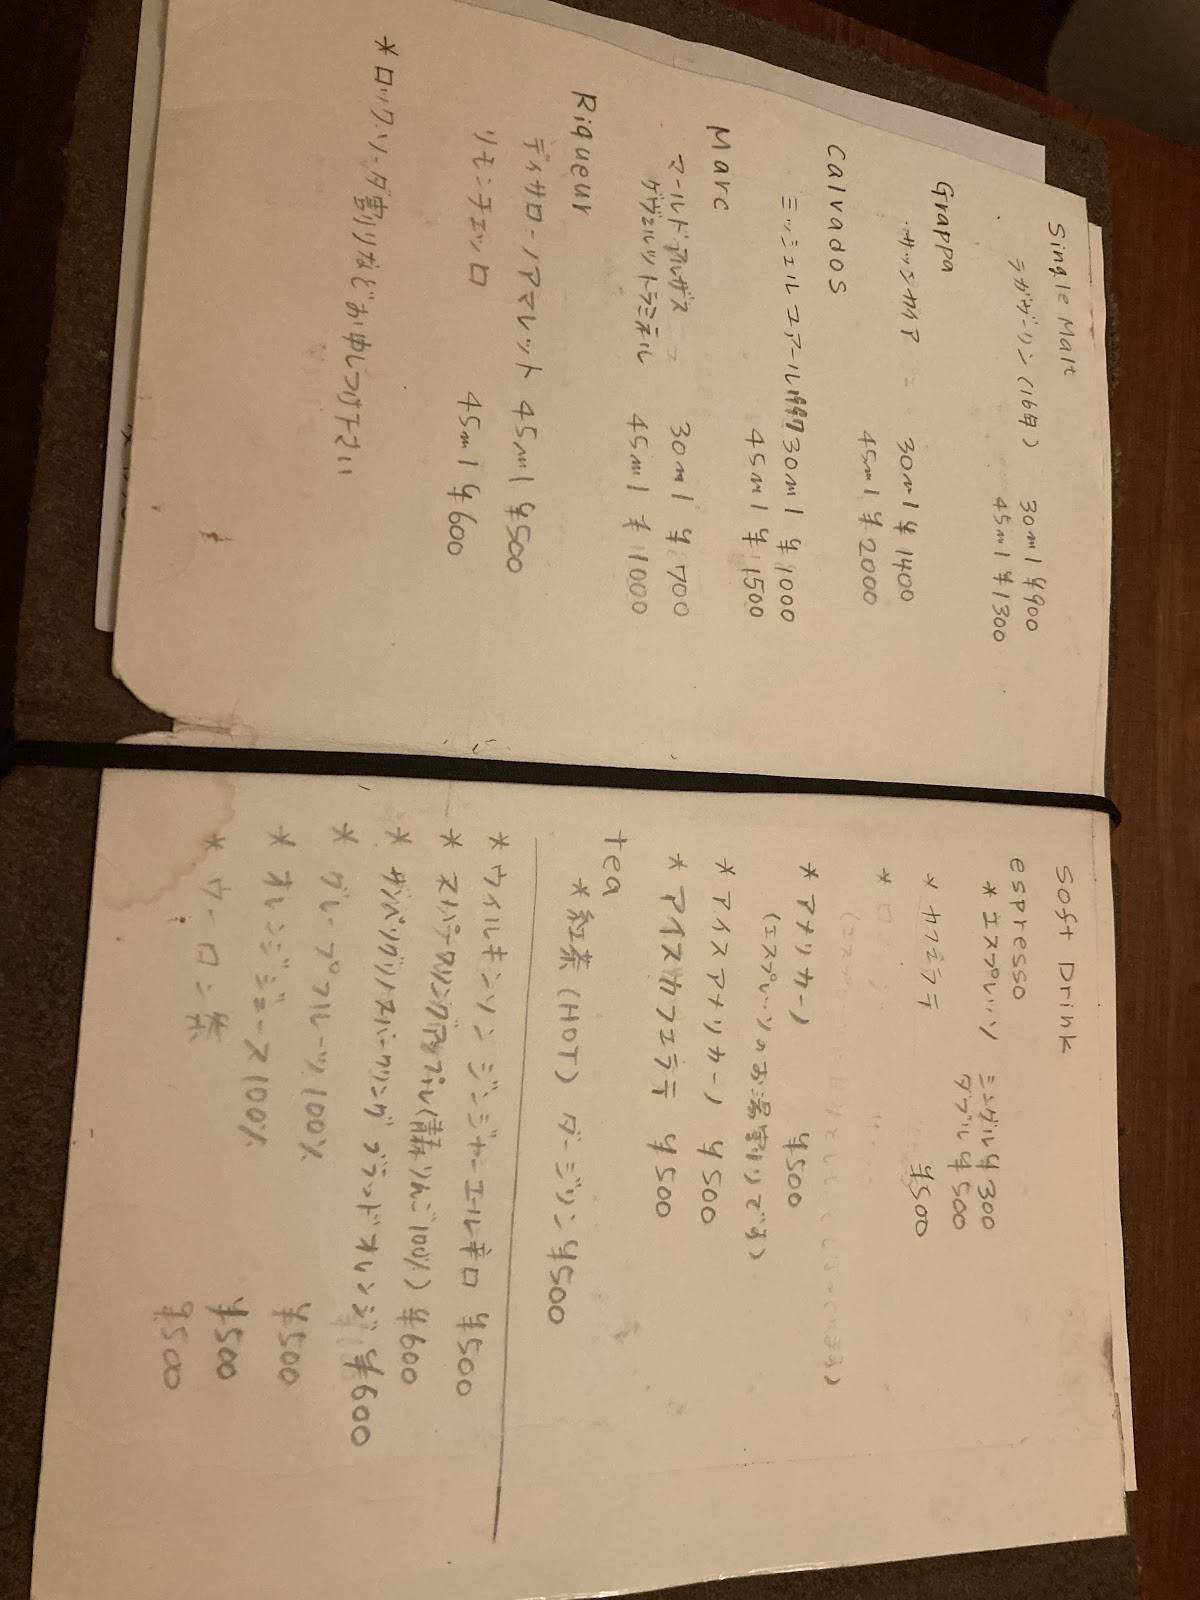 Single Malt
ラガヴーリン(16年) 30ml ¥900
45ml ¥1300
Grappa
サッシカイア 30ml ¥1400
45ml ¥2000
Calvados
ミッシェルユアール1997 30ml ¥1000
45ml ¥1500
Marc
マールドアルザス 30ml ¥700
ゲヴェルツトラミネル 45ml ¥1000
Riqueur
ディサローノアマレット 45ml ¥500
リモンチェッロ 45ml ¥600
*ロック、ソーダ割りなどお申しつけ下さい
Soft Drink
espresso
*エスプレッソ シングル ¥300
ダブル ¥500
*カフェラテ ¥500
*アメリカーノ ¥500
(エスプレッソのお湯割りです)
*アイスアメリカーノ ¥500
*アイスカフェラテ ¥500
tea
*紅茶(HOT) ダージリン ¥500
*ウィルキンソン ジンジャーエール辛口 ¥500
*スパークリングアップル(青森りんご100%) ¥600
*サンペリグリノスパークリング ブラッドオレンジ ¥600
*グレープフルーツ100% ¥500
*オレンジジュース100% ¥500
*ウーロン茶 ¥500